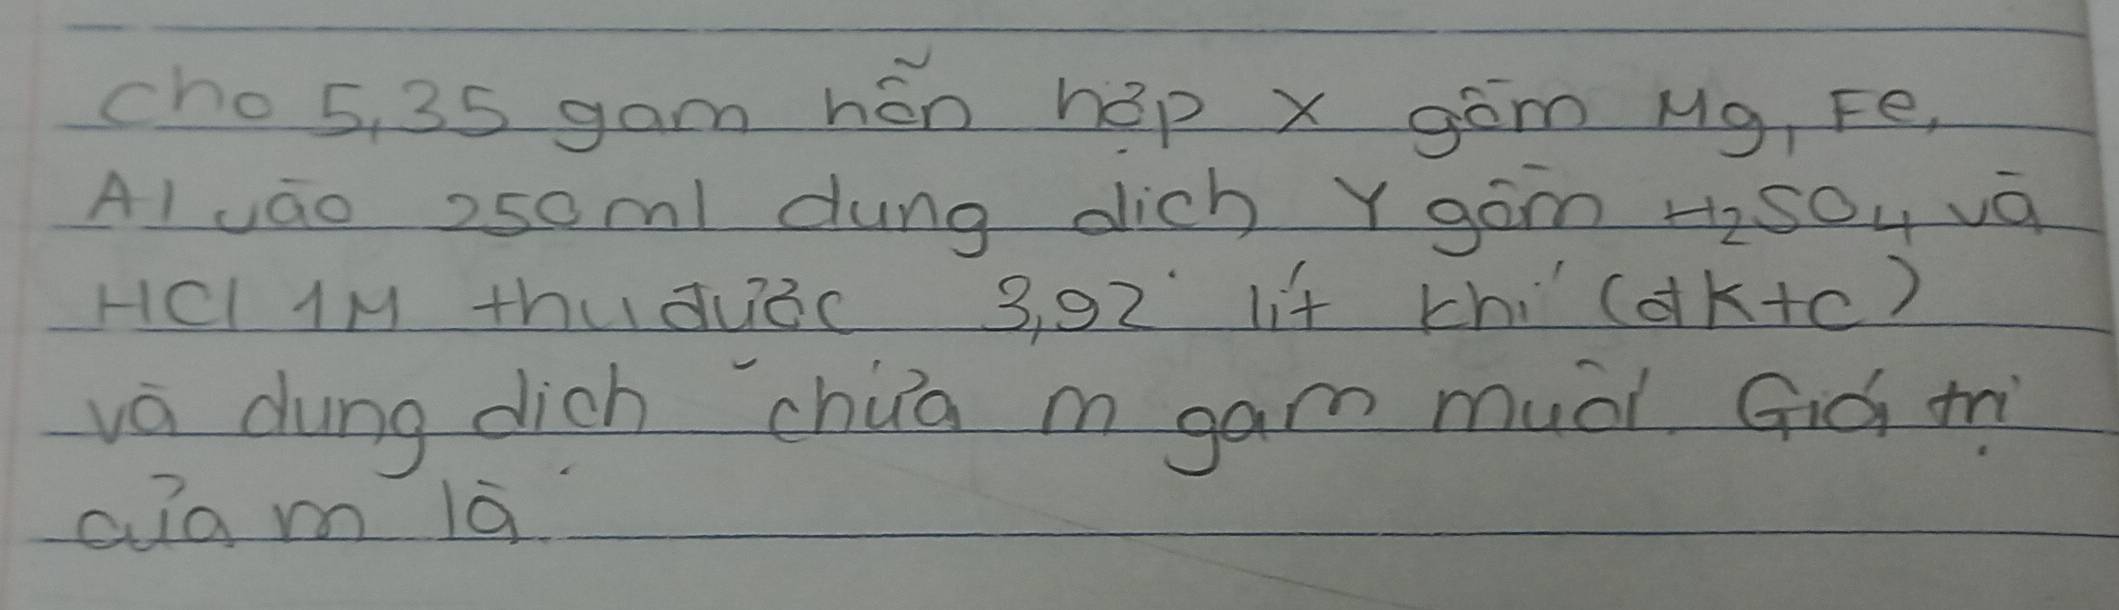 Cho 5,35 gam hỗn hợp X gồm Mg, Fe,
Al vào 250 ml dung dịch Y gồm H₂SO₄ và
HCl 1M thu được 3,92 lít khí (đktc)
và dung dịch chứa m gam muối. Giá trị
của m là